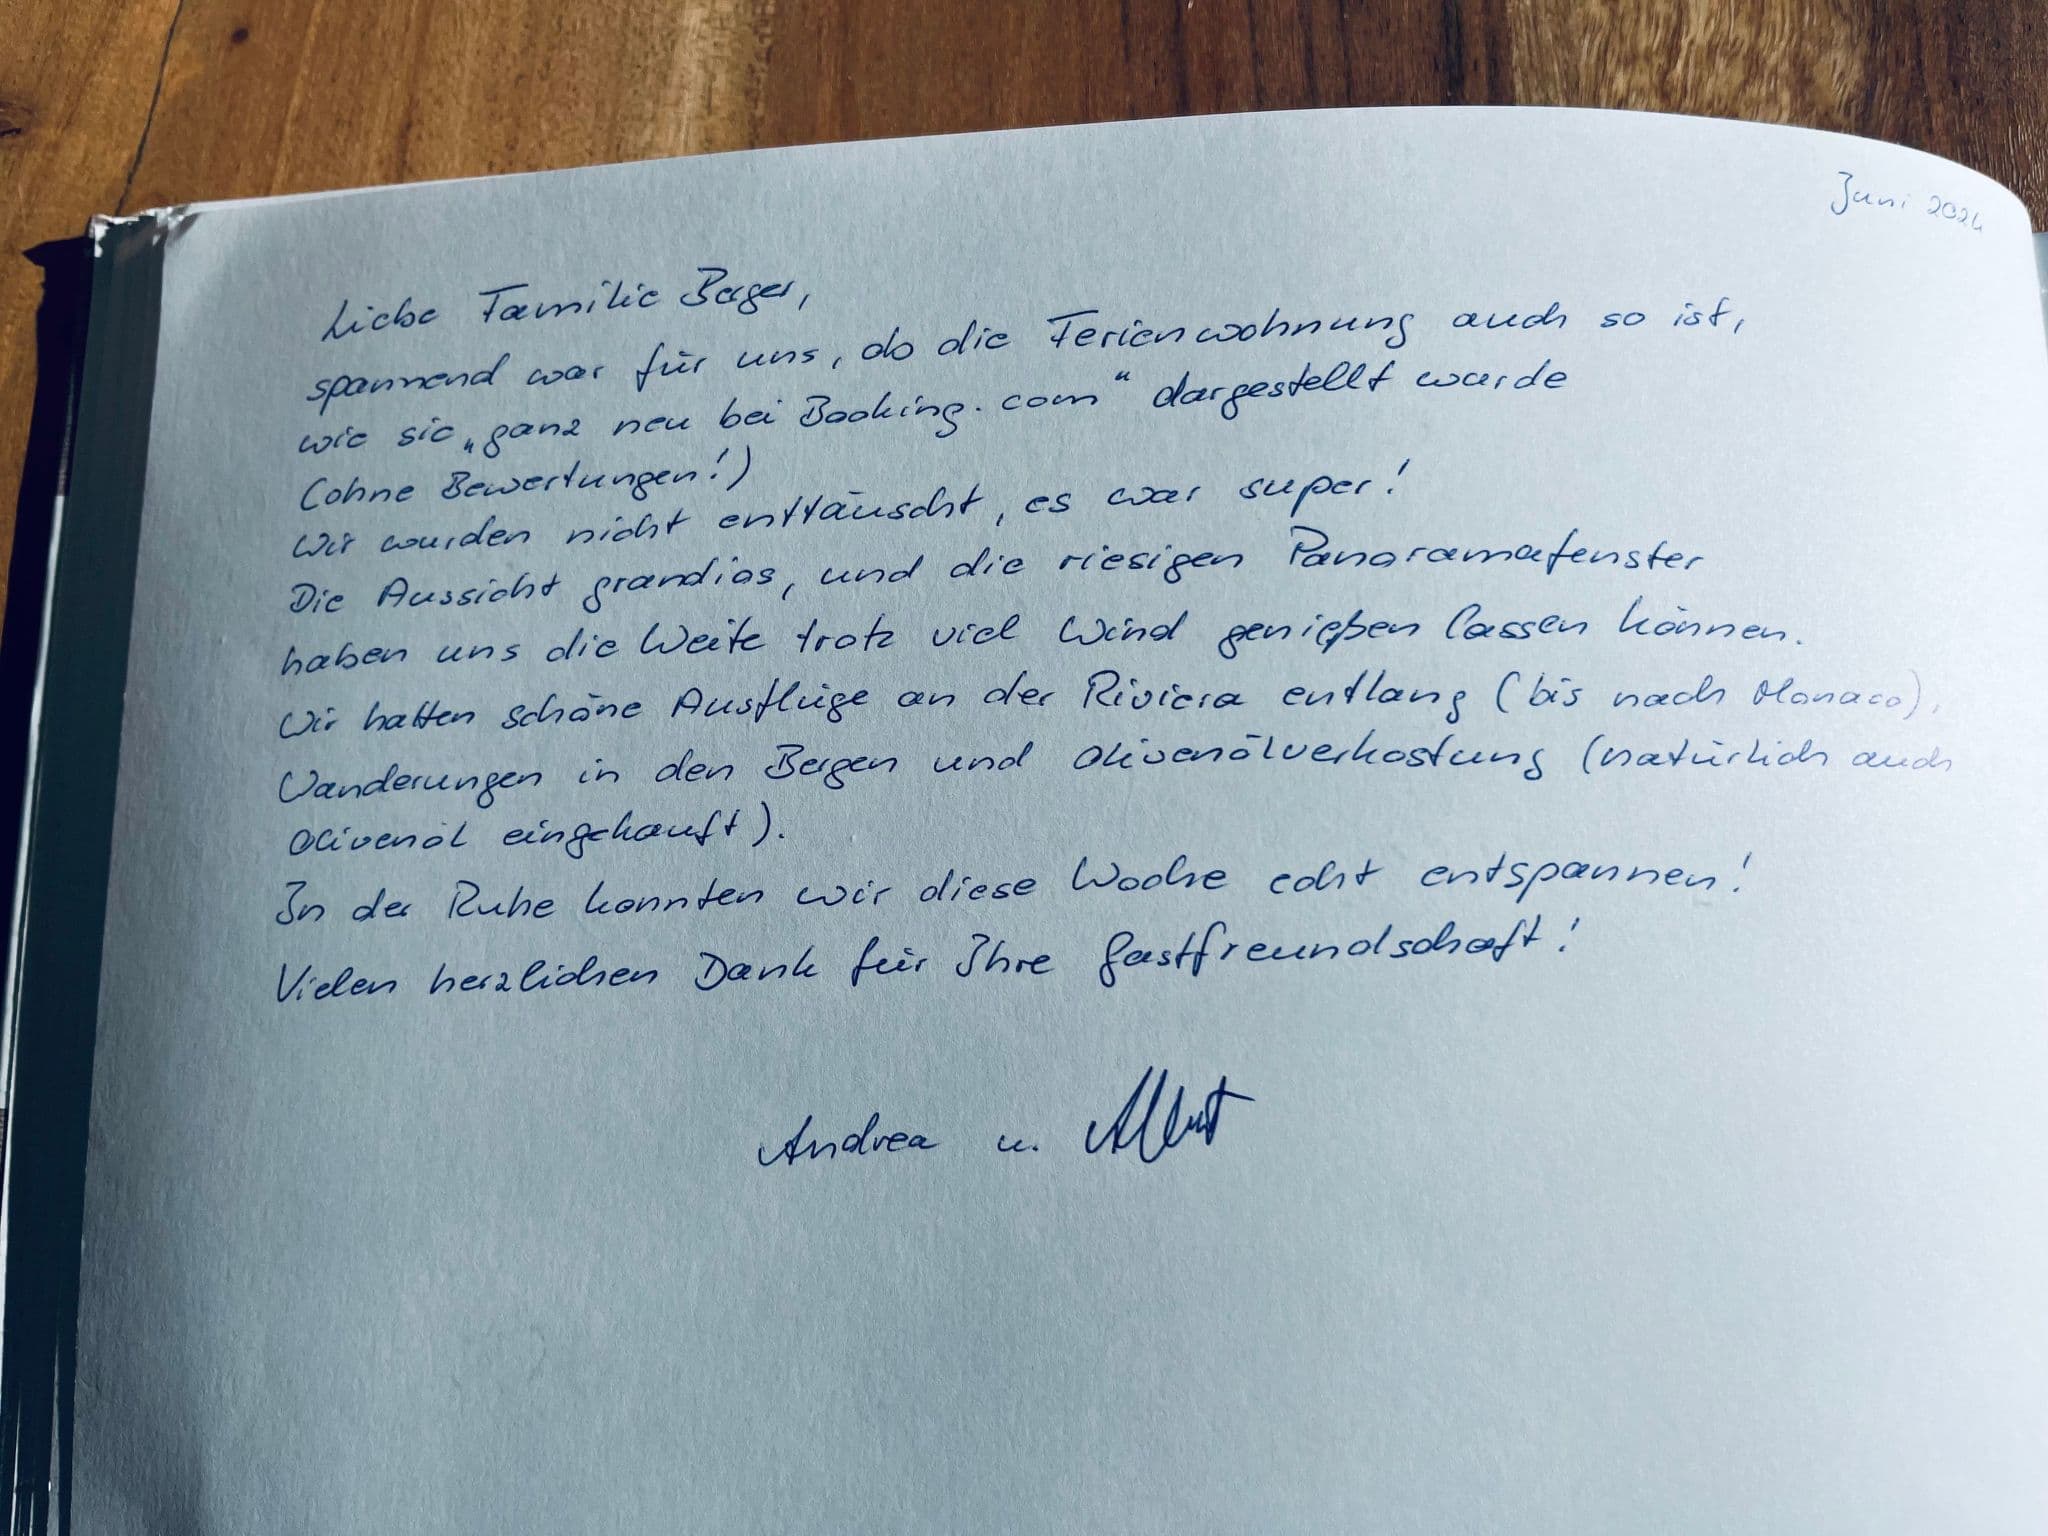 Juni 2024
Liebe Familie Berger,
spannend war für uns, ob die Ferienwohnung auch so ist,
wie sie „ganz neu bei Booking.com“ dargestellt wurde
(ohne Bewertungen!)
Wir wurden nicht enttäuscht, es war super!
Die Aussicht grandios, und die riesigen Panoramafenster
haben uns die Weite trotz viel Wind genießen lassen können.
Wir hatten schöne Ausflüge an der Riviera entlang (bis nach Monaco),
Wanderungen in den Bergen und Olivenölverkostung (natürlich auch
Olivenöl eingekauft).
In der Ruhe konnten wir diese Woche echt entspannen!
Vielen herzlichen Dank für Ihre Gastfreundschaft!
Andrea u. Albert